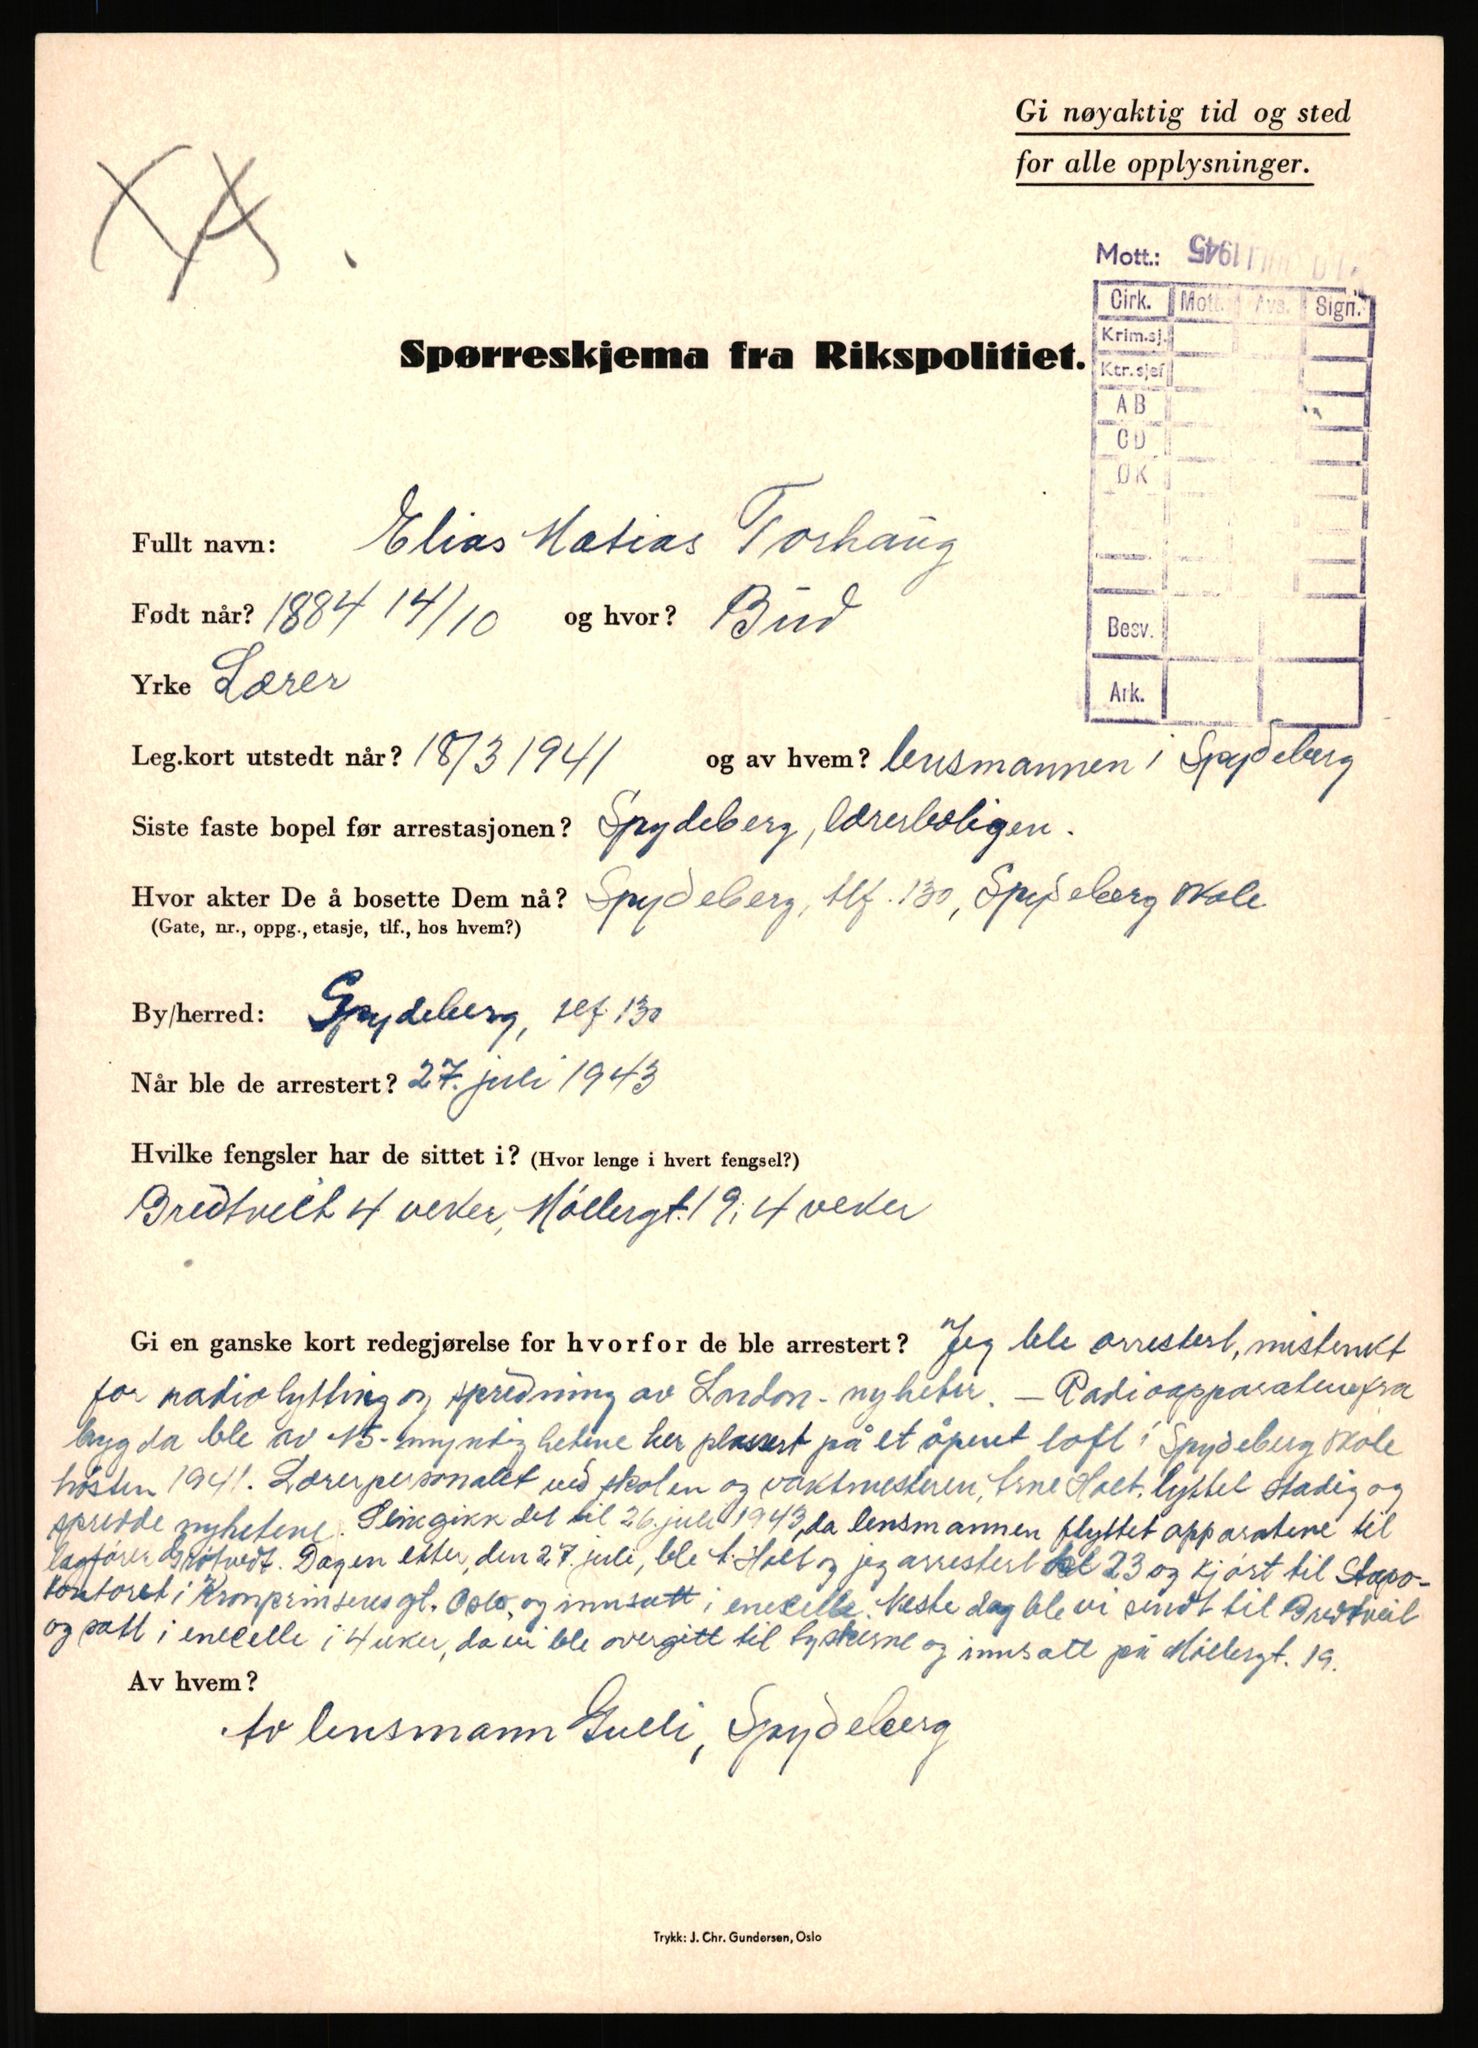 Gi nøyaktig tid og sted
for alle opplysninger.
Mott.: 1945
Cirk. Mott. Avs. Sign.
Krim.sj.
Ktr.sjef
AB
CD
ØK
Besv.
Ark.
Spørreskjema fra Rikspolitiet.
Fullt navn: Elias Matias Torhaug
Født når? 1884 14/10 og hvor? Bud
Yrke Lærer
Leg.kort utstedt når? 18/3 1941 og av hvem? lensmannen i Spydeberg
Siste faste bopel før arrestasjonen? Spydeberg, lærerboligen.
Hvor akter De å bosette Dem nå? Spydeberg, tlf. 130, Spydeberg skole
(Gate, nr., oppg., etasje, tlf., hos hvem?)
By/herred: Spydeberg, tlf 130
Når ble de arrestert? 27. juli 1943
Hvilke fengsler har de sittet i? (Hvor lenge i hvert fengsel?)
Bredtveit 4 veker, Møllergt. 19; 4 veker
Gi en ganske kort redegjørelse for hvorfor de ble arrestert? "Jeg ble arrestert, mistenkt
for radiolytting og spredning av London-nyheter. — Radioapparatene fra
bygda ble av NS-myndighetene her plassert på et åpent loft i Spydeberg skole
høsten 1941. Lærerpersonalet ved skolen og vaktmesteren, Arne Holt, lyttet stadig og
spredde nyhetene. Slik gikk det til 26. juli 1943, da lensmannen flyttet apparatene til
lagfører Grøtvedt. Dagen etter, den 27. juli, ble A. Holt og jeg arrestert kl 23 og kjørt til Stapo-
kontoret i Kronprinsens gt. Oslo, og innsatt i enecelle. Neste dag ble vi sendt til Bredtveit
og satt i enecelle i 4 uker, da vi ble overgitt til tyskerne og innsatt på Møllergt. 19.
Av hvem?
Av lensmann Gulli, Spydeberg
Trykk: J. Chr. Gundersen, Oslo